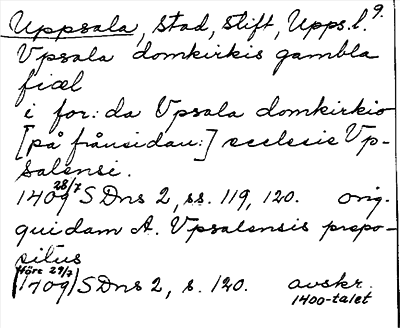 Uppsala, stad, stift, Upps.l. 9.
Vpsala domkirkis gambla
fiæl
i for: da Vpsala domkirkio
[på frånsidan:] ecclesie Vp-
salensi.
28/7
1409 SDns 2, ss. 119, 120. orig.
quidam A. Vpsalensis prepo-
situs
före 29/7
(1409) SDns 2, s. 120. avskr.
1400-talet